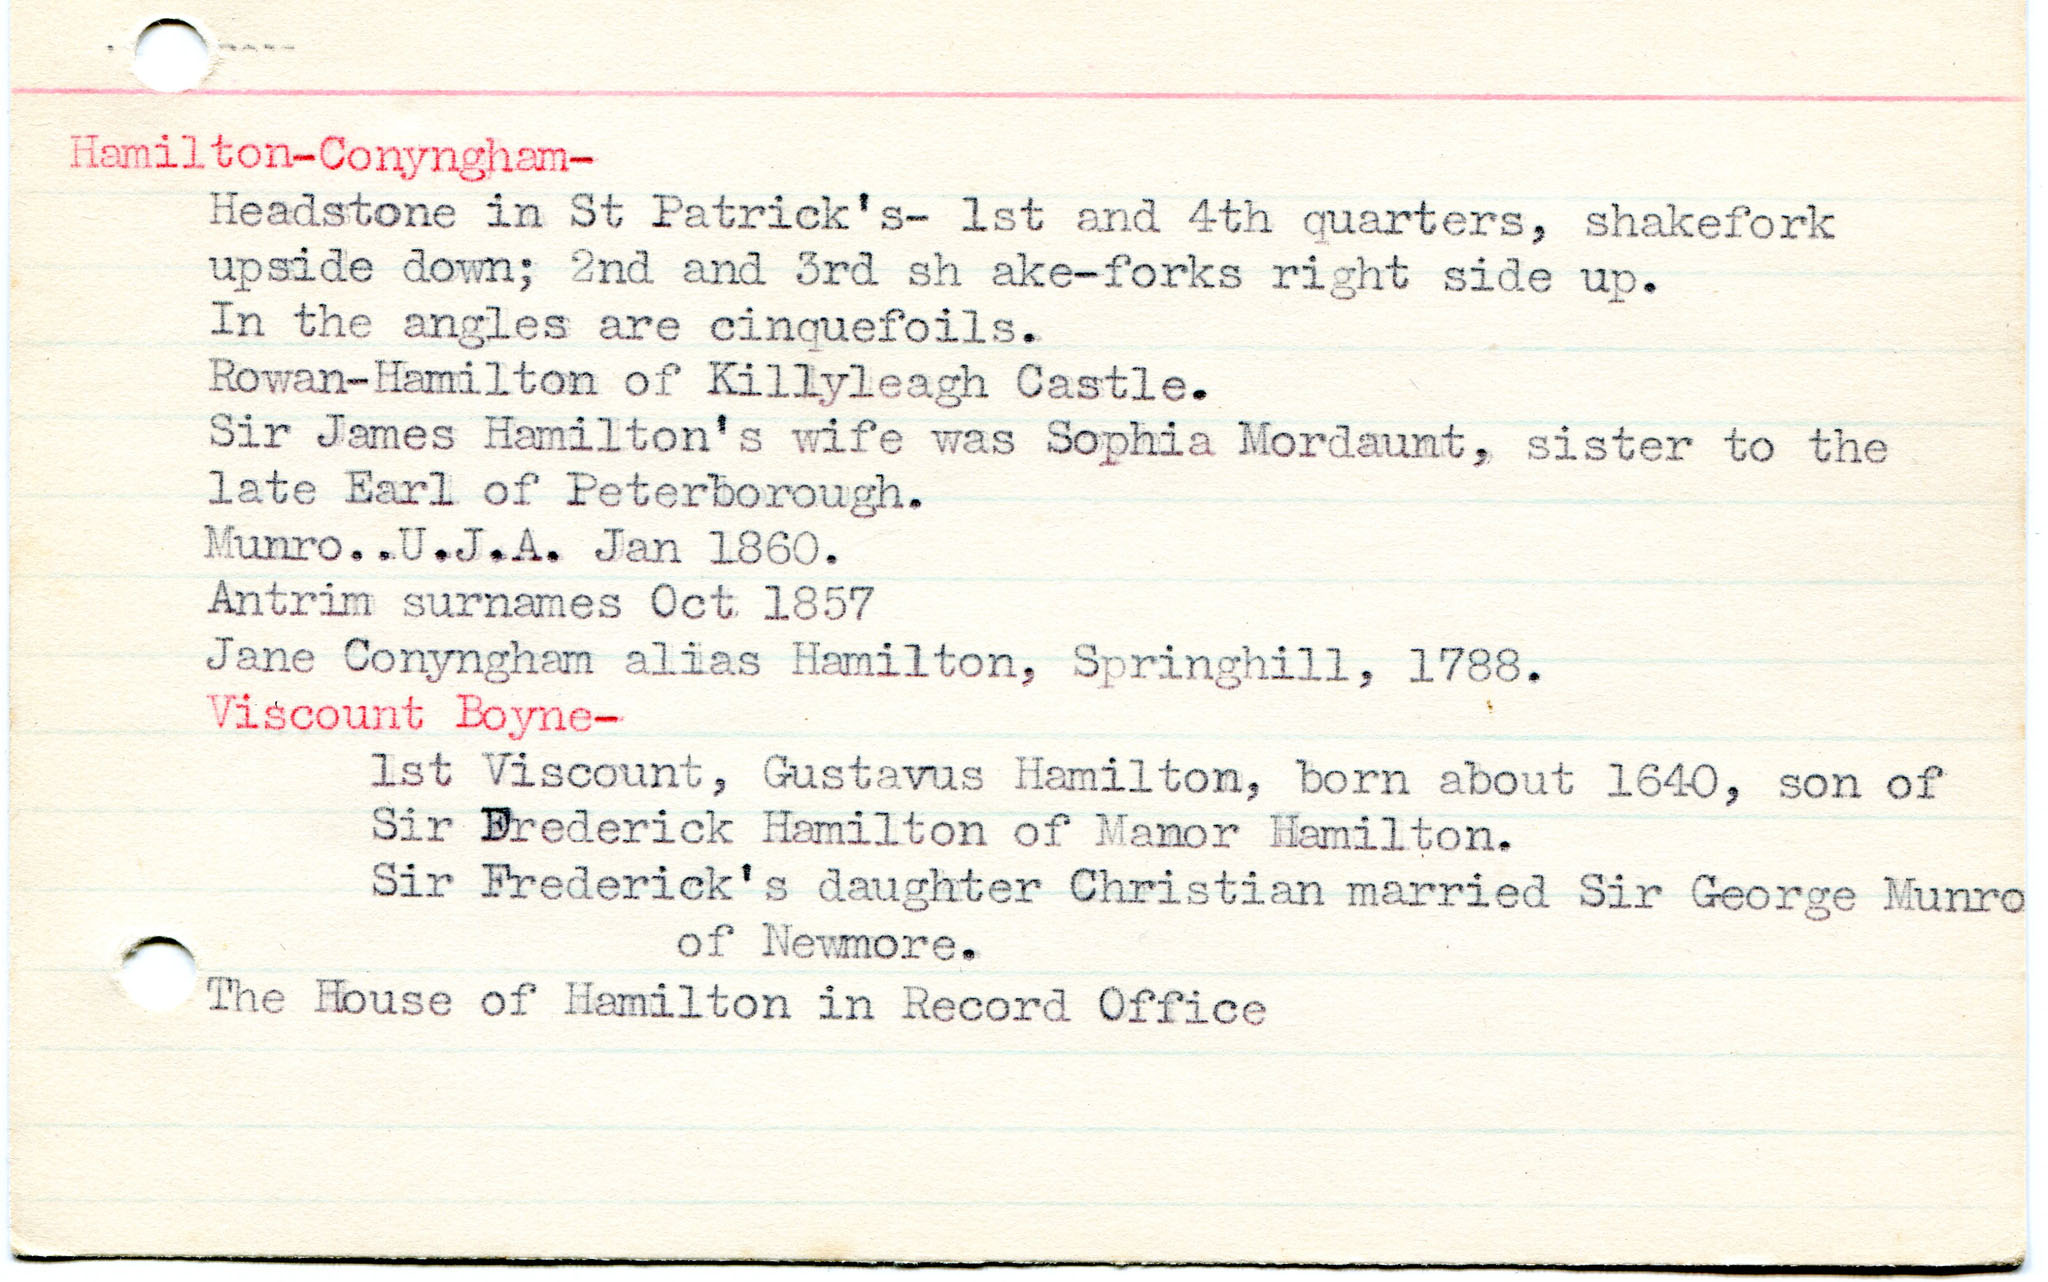 Hamilton-Conyngham-
Headstone in St Patrick's- 1st and 4th quarters, shakefork
upside down; 2nd and 3rd sh ake-forks right side up.
In the angles are cinquefoils.
Rowan-Hamilton of Killyleagh Castle.
Sir James Hamilton's wife was Sophia Mordaunt, sister to the
late Earl of Peterborough.
Munro..U.J.A. Jan 1860.
Antrim surnames Oct 1857
Jane Conyngham alias Hamilton, Springhill, 1788.
Viscount Boyne-
1st Viscount, Gustavus Hamilton, born about 1640, son of
Sir Frederick Hamilton of Manor Hamilton.
Sir Frederick's daughter Christian married Sir George Munro
of Newmore.
The House of Hamilton in Record Office